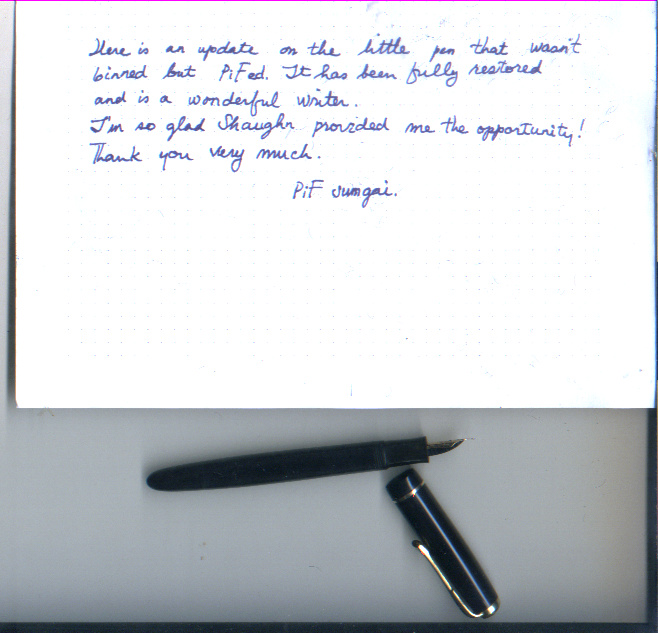 Here is an update on the little pen that wasn't
binned but PiFed. It has been fully restored
and is a wonderful writer.
I'm so glad Shaughn provided me the opportunity!
Thank you very much.
PiF sumgai.